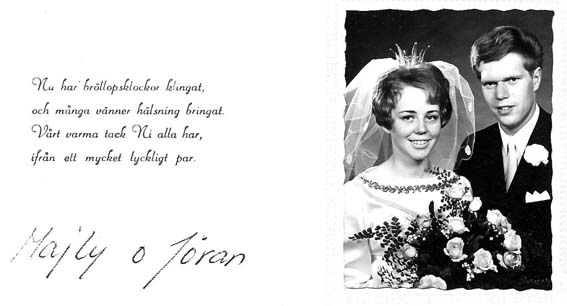 Nu har bröllopsklockor klingat,
och många vänner hälsning bringat.
Vårt varma tack Ni alla har,
ifrån ett mycket lyckligt par.
Majly o Jöran